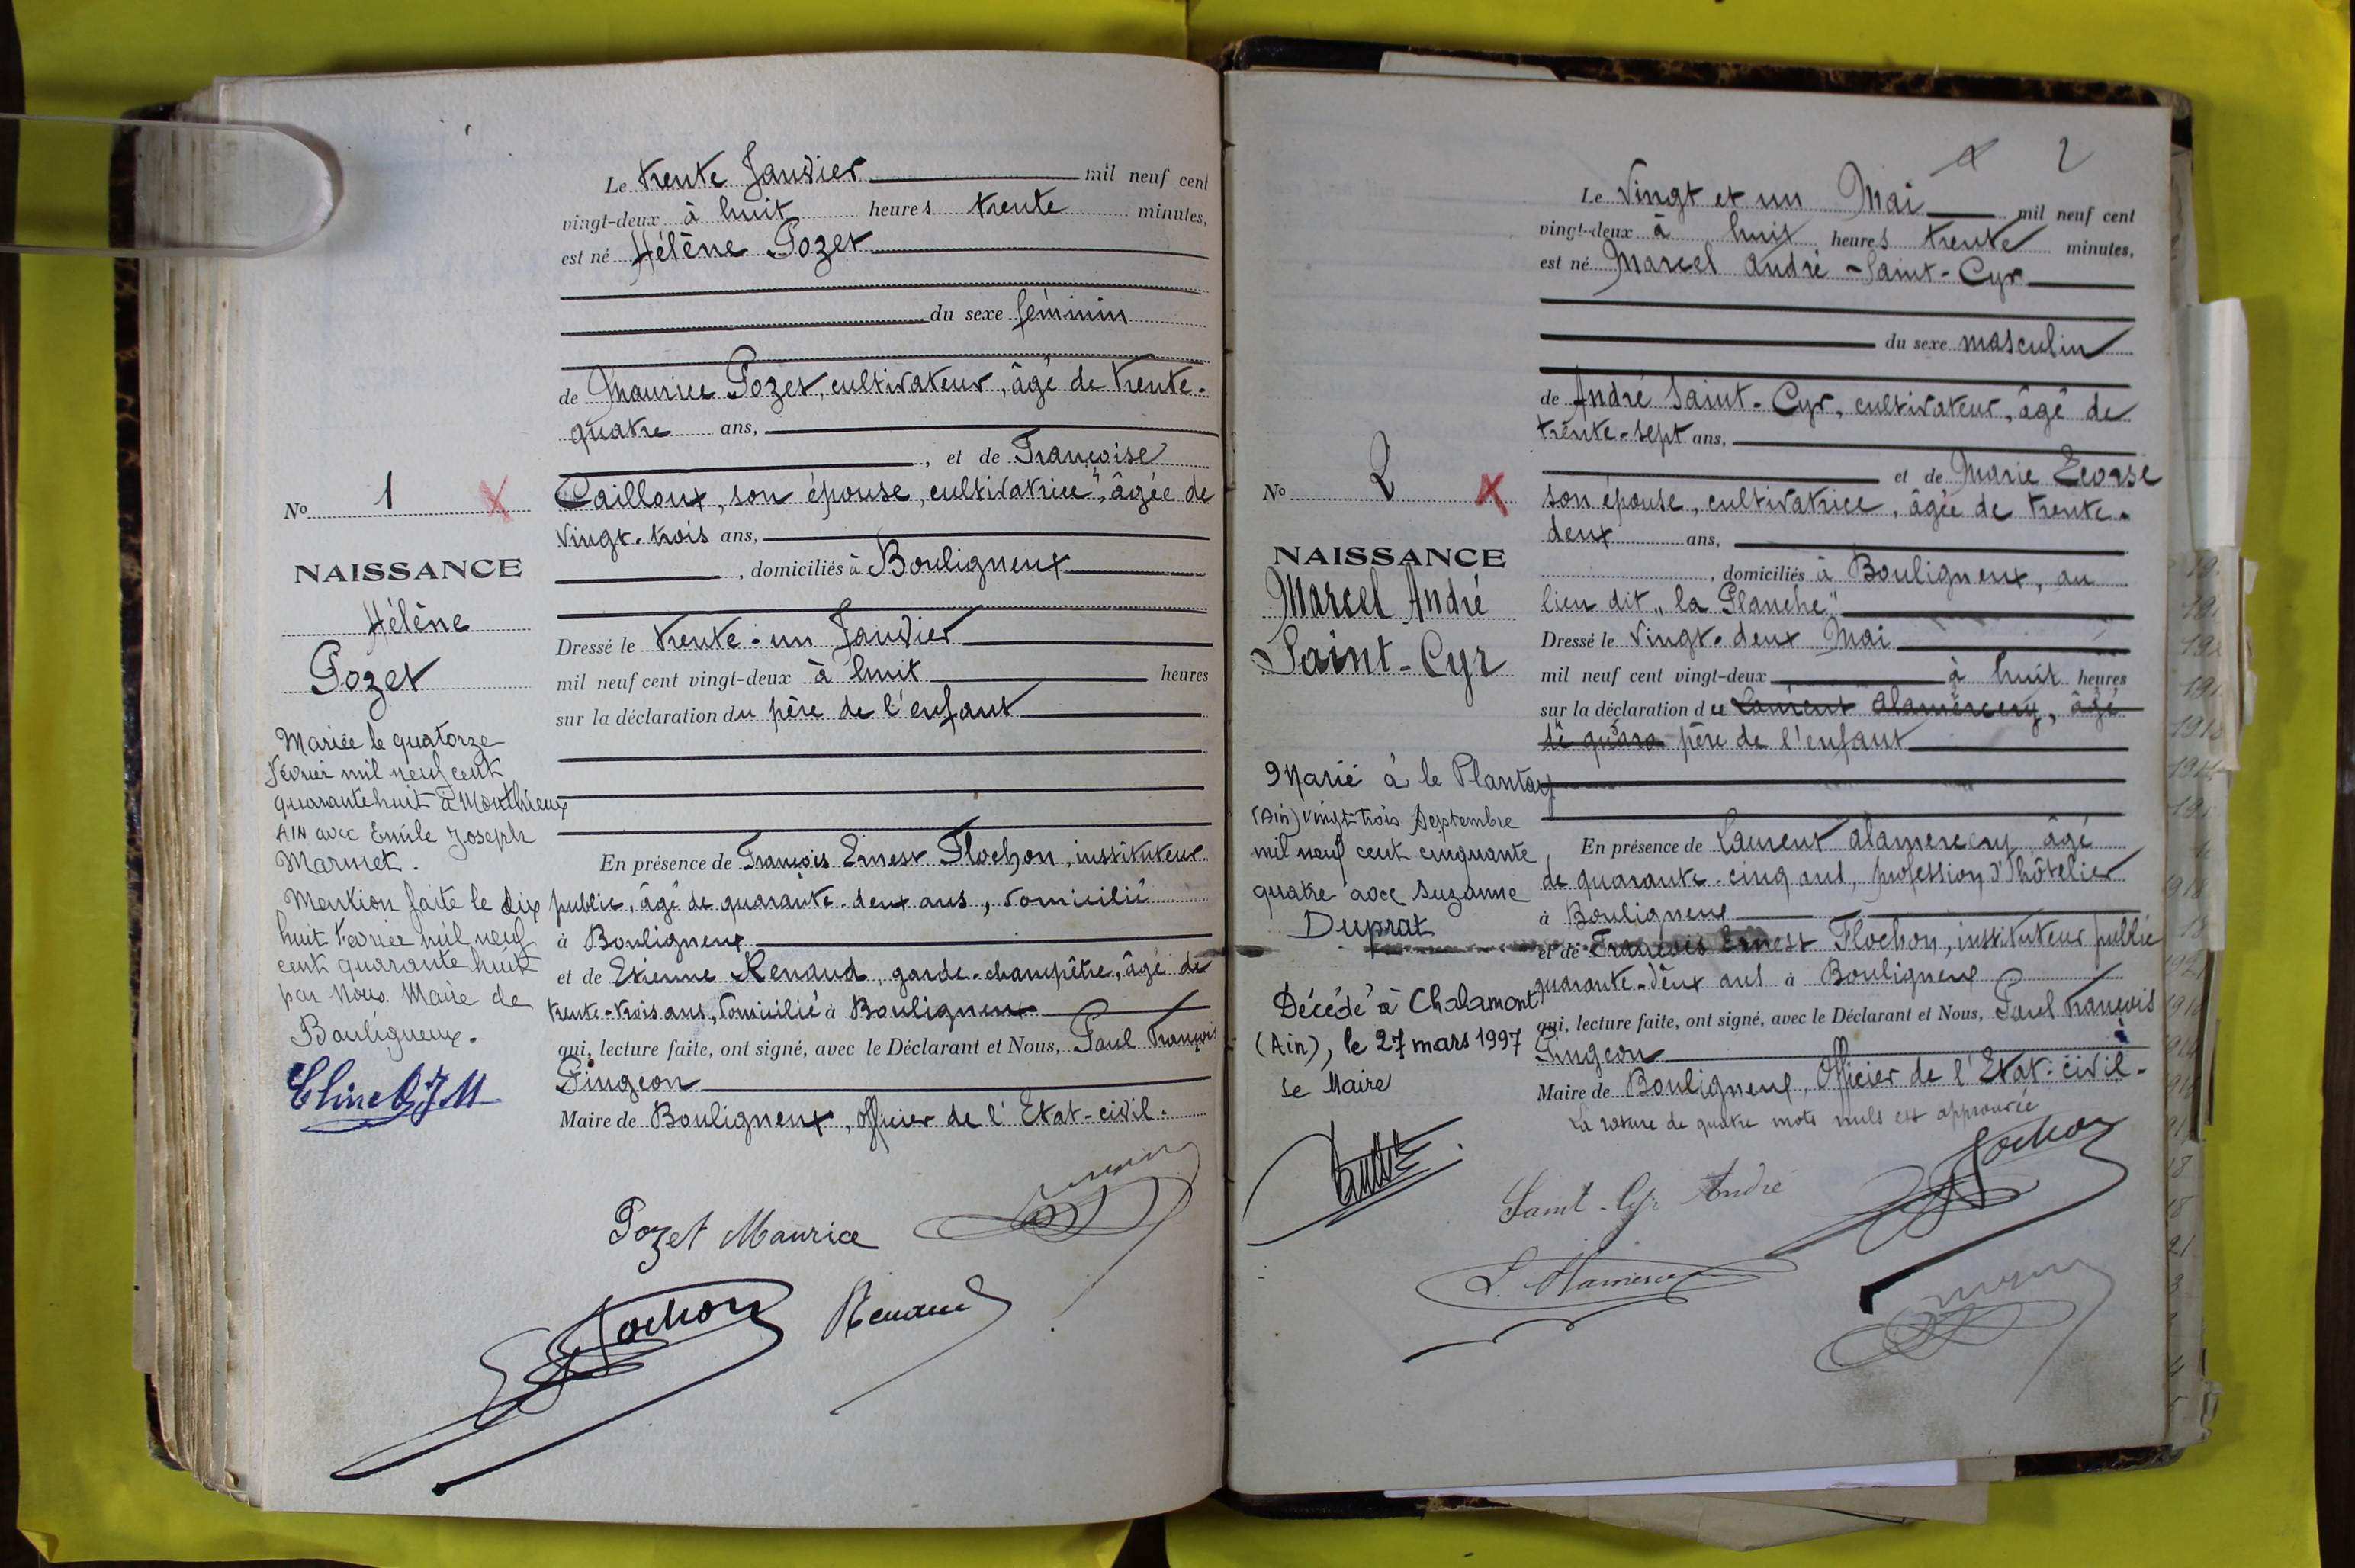 Le trente Janvier mil neuf cent
vingt-deux à huit heures trente minutes,
est né Hélène Pozet
du sexe féminin
de Maurice Pozet, cultivateur, âgé de trente-
quatre ans,
, et de Françoise
Cailloux, son épouse, cultivatrice, âgée de
vingt-trois ans,
, domiciliés à Bouligneux
Dressé le trente-un Janvier
mil neuf cent vingt-deux à huit heures
sur la déclaration du père de l'enfant
En présence de François Ernest Flochon, instituteur
public, âgé de quarante-deux ans, domicilié
à Bouligneux
et de Etienne Renaud, garde-champêtre, âgé de
trente-trois ans, domicilié à Bouligneux
qui, lecture faite, ont signé, avec le Déclarant et Nous, Paul François
Pingeon
Maire de Bouligneux, Officier de l'Etat-civil.
Pozet Maurice
Flochon
Renaud
No 1
NAISSANCE
Hélène
Pozet
Mariée le quatorze
Février mil neuf cent
quarante huit à Monthieux
AIN avec Emile Joseph
Marmet.
Mention faite le dix
huit Février mil neuf
cent quarante huit
par Nous Maire de
Bouligneux.
2
Le vingt et un Mai mil neuf cent
vingt-deux à huit heures trente minutes,
est né Marcel André Saint-Cyr
du sexe masculin
de André Saint-Cyr, cultivateur, âgé de
trente-sept ans,
et de Marie Ecorse
son épouse, cultivatrice, âgée de trente-
deux ans,
, domiciliés à Bouligneux, au
lieu dit "la Planche"
Dressé le vingt-deux Mai
mil neuf cent vingt-deux à huit heures
sur la déclaration du Laurent Alamercery, âgé
de quara père de l'enfant
En présence de Laurent Alamercery âgé
de quarante-cinq ans, profession d'hôtelier
à Bouligneux
et de François Ernest Flochon, instituteur public
quarante-deux ans à Bouligneux
qui, lecture faite, ont signé, avec le Déclarant et Nous, Paul François
Pingeon
Maire de Bouligneux, Officier de l'Etat-civil.
La rature de quatre mots nuls est approuvée
Saint-Cyr André
Flochon
L. Alamercery
No 2
NAISSANCE
Marcel André
Saint-Cyr
Marié à le Plantay
(Ain) vingt trois Septembre
mil neuf cent cinquante
quatre avec Suzanne
Duprat
Décédé à Chalamont
(Ain), le 27 mars 1997
Le Maire